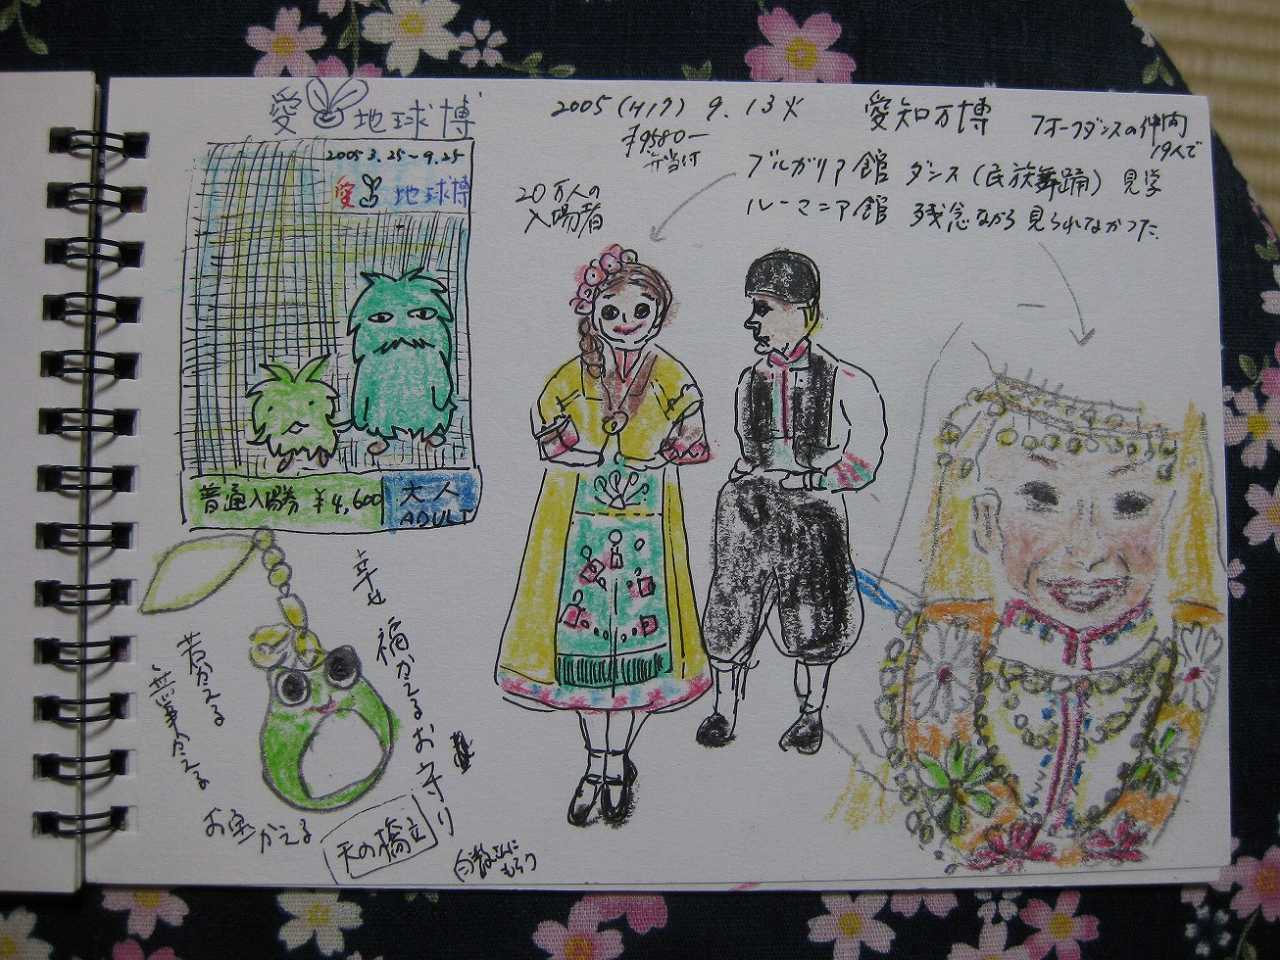 愛 地球博
2005.3.25~9.25
愛 地球博
普通入場券 ¥4,600
大人
ADULT
2005(H17) 9.13火
¥9580ー
弁当付
愛知万博
フォークダンスの仲間
19人で
20万人の
入場者
ブルガリア館 ダンス(民族舞踊) 見学
ルーマニア館 残念ながら見られなかった
幸せ
福かえるお守り
若がえる
無事かえる
お金かえる
天の橋立
さんに
もらう